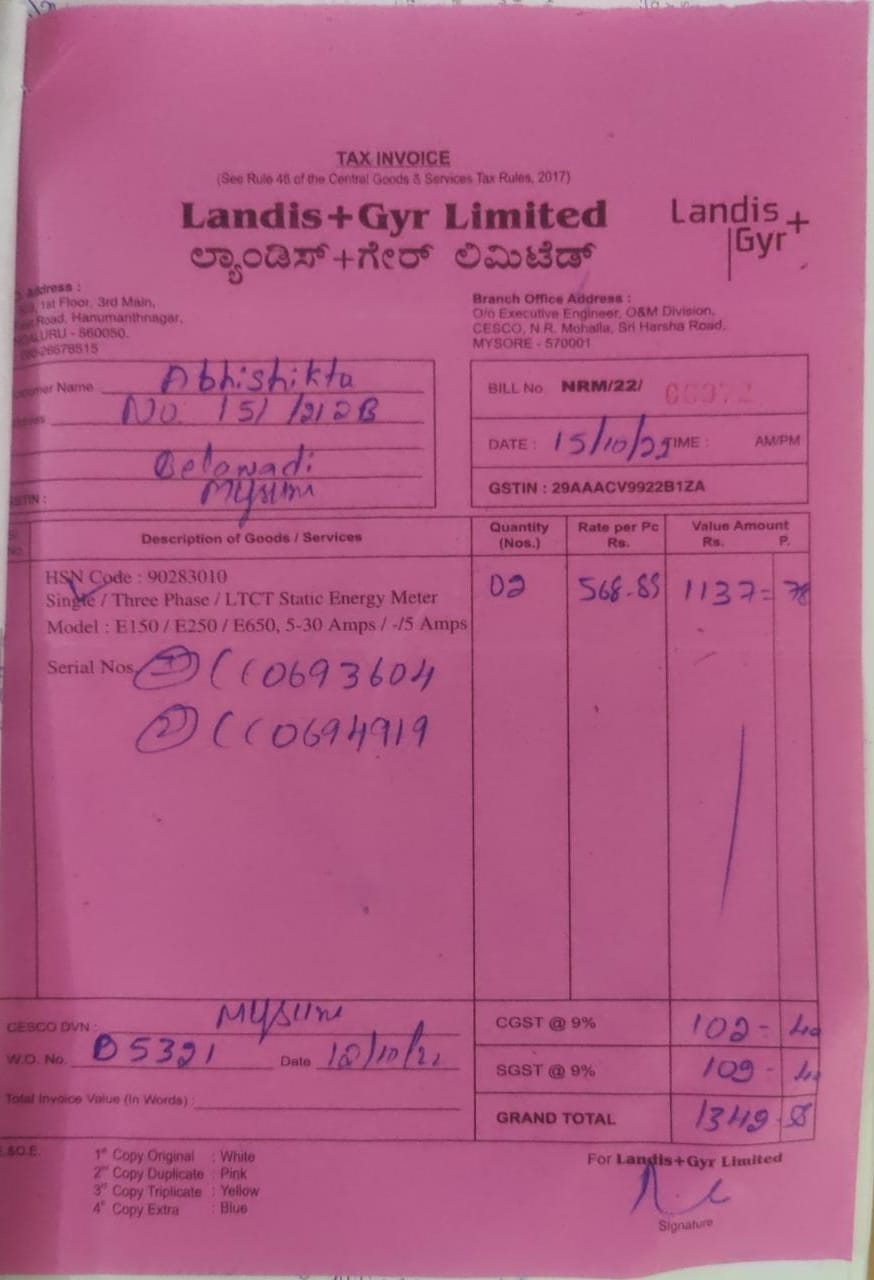 TAX INVOICE
(See Rule 46 of the Central Goods & Services Tax Rules, 2017)
Landis+Gyr Limited
ಲ್ಯಾಂಡಿಸ್+ಗೇರ್ ಲಿಮಿಟೆಡ್
Landis
Gyr+
Address :
1st Floor, 3rd Main,
Road, Hanumanthnagar,
- 560050.
26678515
Branch Office Address :
O/o Executive Engineer, O&M Division,
CESCO, N.R. Mohalla, Sri Harsha Road,
MYSORE - 570001
Name Abhishikta
No. 151 /212B
Belawadi
Mysuru
BILL No. NRM/22/
DATE : 15/10/21 TIME : AM/PM
GSTIN : 29AAACV9922B1ZA
Description of Goods / Services
Quantity (Nos.)
Rate per Pc Rs.
Value Amount Rs. P.
HSN Code : 90283010
Single / Three Phase / LTCT Static Energy Meter
Model : E150 / E250 / E650, 5-30 Amps / -/5 Amps
02 568.89 1137= 78
Serial Nos. 1) CC0693604
2) CC0694919
CESCO DVN : Mysuru
W.O. No. D5321 Date 12/10/21
Total Invoice Value (In Words) :
CGST @ 9% 102- 40
SGST @ 9% 102- 40
GRAND TOTAL 1342
1st Copy Original : White
2nd Copy Duplicate : Pink
3rd Copy Triplicate : Yellow
4th Copy Extra : Blue
For Landis+Gyr Limited
Signature